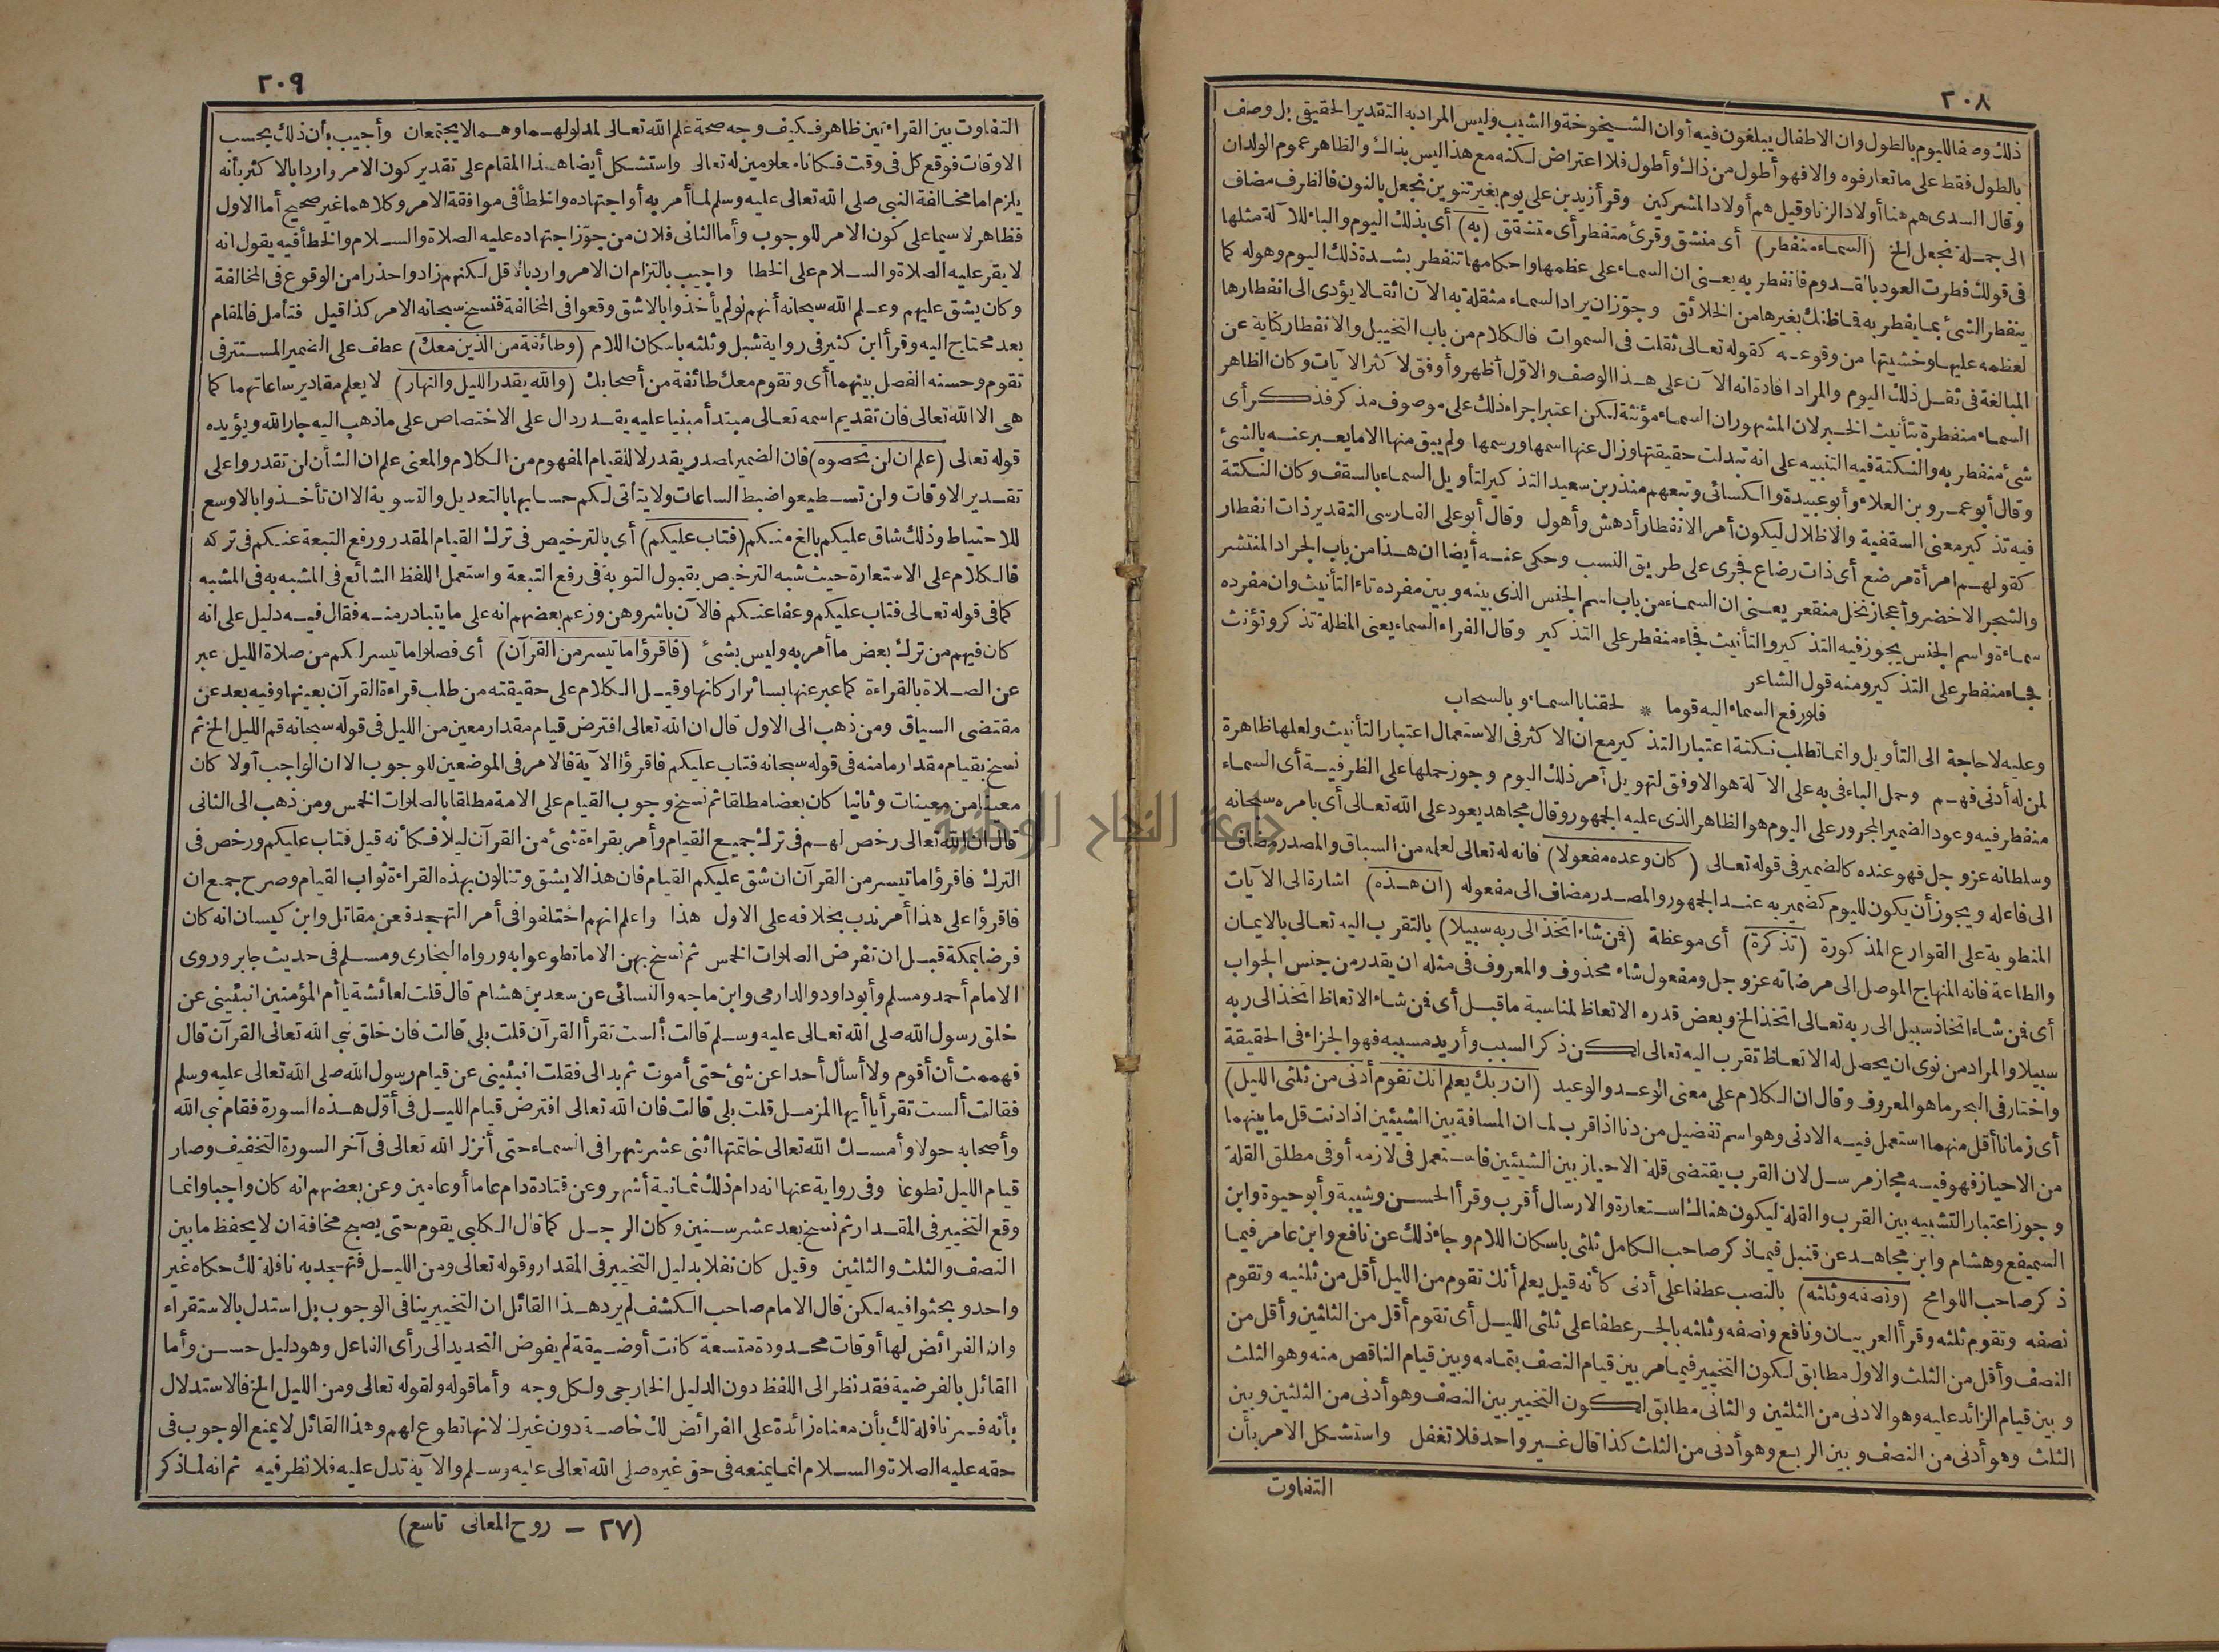 ٢٠٨
ذلك وصفا لليوم بالطول وان الاطفال يبلغون فيه أوان الشيخوخة والشيب وليس المراد به التقدير الحقيقي بل وصف
بالطول فقط على ما تعارفوه والا فهو أطول من ذاك وأطول فلا اعتراض لكنه مع هذا ليس بذاك والظاهر عموم الولدان
وقال السدى هم هنا أولاد الزنا وقيل هم أولاد المشركين وقرأ زيد بن على يوم بغير تنوين نجعل بالنون فالظرف مضاف
الى جملة نجعل الخ (السماء منفطر) أى منشق وقرئ متفطر أى متشقق (به) أى بذلك اليوم والباء للآلة مثلها
فى قولك فطرت العود بالقدوم فانفطر به يعنى ان السماء على عظمها واحكامها تنفطر بشدة ذلك اليوم وهوله كما
ينفطر الشئ بما يفطر به فما ظنك بغيرها من الخلائق وجوز ان يراد السماء مثقلة به الآن اثقالا يؤدى الى انفطارها
لعظمه عليها وخشيتها من وقوعه كقوله تعالى ثقلت فى السموات فالكلام من باب التخييل والانفطار كناية عن
المبالغة فى ثقل ذلك اليوم والمراد افادة انه الآن على هذا الوصف والاول أظهر وأوفق لاكثر الآيات وكان الظاهر
السماء منفطرة بتأنيث الخبر لان المشهور ان السماء مؤنثة لكن اعتبر اجراء ذلك على موصوف مذكر فذكر أى
شئ منفطر به والنكتة فيه التنبيه على انه تبدلت حقيقتها وزال عنها اسمها ورسمها ولم يبق منها الا ما يعبر عنه بالشئ
وقال أبو عمرو بن العلاء وأبو عبيدة والكسائى وتبعهم منذر بن سعيد التذكير لتأويل السماء بالسقف وكان النكتة
فيه تذكير معنى السقفية والاظلال ليكون أمر الانفطار أدهش وأهول وقال أبو على الفارسى التقدير ذات انفطار
كقولهم امرأة مرضع أى ذات رضاع فجرى على طريق النسب وحكى عنه أيضا ان هذا من باب الجراد المنتشر
والشجر الاخضر وأعجاز نخل منقعر يعنى ان السماء من باب اسم الجنس الذى بينه وبين مفرده تاء التأنيث وان مفرده
سماءة واسم الجنس يجوز فيه التذكير والتأنيث فجاء منفطر على التذكير وقال الفراء السماء يعنى المظلة تذكر وتؤنث
فجاء منفطر على التذكير ومنه قول الشاعر
فلو رفع السماء اليه قوما * لحقنا بالسماء وبالسحاب
وعليه لا حاجة الى التأويل وانما تطلب نكتة اعتبار التذكير مع ان الاكثر فى الاستعمال اعتبار التأنيث ولعلها ظاهرة
لمن له أدنى فهم وحمل الباء فى به على الآلة هو الاوفق لتهويل أمر ذلك اليوم وجوز حملها على الظرفية أى السماء
منفطر فيه وعود الضمير المجرور على اليوم هو الظاهر الذى عليه الجمهور وقال مجاهد يعود على الله تعالى أى بامره سبحانه
وسلطانه عز وجل فهو عنده كالضمير فى قوله تعالى (كان وعده مفعولا) فانه له تعالى لعلمه من السباق والمصدر مضاف
الى فاعله ويجوز أن يكون لليوم كضمير به عند الجمهور والمصدر مضاف الى مفعوله (ان هذه) اشارة الى الآيات
المنطوية على القوارع المذكورة (تذكرة) أى موعظة (فمن شاء اتخذ الى ربه سبيلا) بالتقرب اليه تعالى بالايمان
والطاعة فانه المنهاج الموصل الى مرضاته عز وجل ومفعول شاء محذوف والمعروف فى مثله ان يقدر من جنس الجواب
أى فمن شاء اتخاذ سبيل الى ربه تعالى اتخذ الخ وبعض قدره الاتعاظ لمناسبة ما قبل أى فمن شاء الاتعاظ اتخذ الى ربه
سبيلا والمراد من نوى ان يحصل له الاتعاظ تقرب اليه تعالى لكن ذكر السبب وأريد مسببه فهو الجزاء فى الحقيقة
واختار فى البحر ما هو المعروف وقال ان الكلام على معنى الوعد والوعيد (ان ربك يعلم انك تقوم أدنى من ثلثى الليل)
أى زمانا أقل منهما استعمل فيه الادنى وهو اسم تفضيل من دنا اذا قرب لما ان المسافة بين الشيئين اذا دنت قل ما بينهما
من الاحياز فهو فيه مجاز مرسل لان القرب يقتضى قلة الاحياز بين الشيئين فاستعمل فى لازمه أو فى مطلق القلة
وجوز اعتبار التشبيه بين القرب والقلة ليكون هناك استعارة والارسال أقرب وقرأ الحسن وشيبة وأبو حيوة وابن
السميفع وهشام وابن مجاهد عن قنبل فيما ذكر صاحب الكامل ثلثى باسكان اللام وجاء ذلك عن نافع وابن عامر فيما
ذكر صاحب اللوامح (ونصفه وثلثه) بالنصب عطفا على أدنى كأنه قيل يعلم أنك تقوم من الليل أقل من ثلثيه وتقوم
نصفه وتقوم ثلثه وقرأ العربيان ونافع ونصفه وثلثه بالجر عطفا على ثلثى الليل أى تقوم أقل من الثلثين وأقل من
النصف وأقل من الثلث والاول مطابق لكون التخيير فيما مر بين قيام النصف بتمامه وبين قيام الناقص منه وهو الثلث
وبين قيام الزائد عليه وهو الادنى من الثلثين والثانى مطابق لكون التخيير بين النصف وهو أدنى من الثلثين وبين
الثلث وهو أدنى من النصف وبين الربع وهو أدنى من الثلث كذا قال غير واحد فلا تغفل واستشكل الامر بأن
التفاوت
٢٠٩
التفاوت بين القراءتين ظاهر فكيف وجه صحة علم الله تعالى لمدلولهما وهما لا يجتمعان وأجيب بأن ذلك بحسب
الاوقات فوقع كل فى وقت فكانا معلومين له تعالى واستشكل أيضا هذا المقام على تقدير كون الامر واردا بالاكثر بأنه
يلزم اما مخالفة النبى صلى الله تعالى عليه وسلم لما أمر به أو اجتهاده والخطأ فى موافقة الامر وكلاهما غير صحيح أما الاول
فظاهر لا سيما على كون الامر للوجوب وأما الثانى فلان من جوز اجتهاده عليه الصلاة والسلام والخطأ فيه يقول انه
لا يقر عليه الصلاة والسلام على الخطا واجيب بالتزام ان الامر وارد بالاقل لكنهم زادوا حذرا من الوقوع فى المخالفة
وكان يشق عليهم وعلم الله سبحانه أنهم لو لم يأخذوا بالاشق وقعوا فى المخالفة فنسخ سبحانه الامر كذا قيل فتأمل فالمقام
بعد محتاج اليه وقرأ ابن كثير فى رواية شبل وثلثه باسكان اللام (وطائفة من الذين معك) عطف على الضمير المستتر فى
تقوم وحسنه الفصل بينهما أى وتقوم معك طائفة من أصحابك (والله يقدر الليل والنهار) لا يعلم مقادير ساعاتهما كما
هى الا الله تعالى فان تقديم اسمه تعالى مبتدأ مبنيا عليه يقدر دال على الاختصاص على ما ذهب اليه جار الله ويؤيده
قوله تعالى (علم ان لن تحصوه) فان الضمير لمصدر يقدر لا للقيام المفهوم من الكلام والمعنى علم ان الشأن لن تقدروا على
تقدير الاوقات ولن تستطيعوا ضبط الساعات ولا يتأتى لكم حسابها بالتعديل والتسوية الا ان تأخذوا بالاوسع
للاحتياط وذلك شاق عليكم بالغ منكم (فتاب عليكم) أى بالترخيص فى ترك القيام المقدر ورفع التبعة عنكم فى تركه
فالكلام على الاستعارة حيث شبه الترخيص بقبول التوبة فى رفع التبعة واستعمل اللفظ الشائع فى المشبه به فى المشبه
كما فى قوله تعالى فتاب عليكم وعفا عنكم فالآن باشروهن وزعم بعضهم انه على ما يتبادر منه فقال فيه دليل على انه
كان فيهم من ترك بعض ما أمر به وليس بشئ (فاقرؤا ما تيسر من القرآن) أى فصلوا ما تيسر لكم من صلاة الليل عبر
عن الصلاة بالقراءة كما عبر عنها بسائر اركانها وقيل الكلام على حقيقته من طلب قراءة القرآن بعينها وفيه بعد عن
مقتضى السياق ومن ذهب الى الاول قال ان الله تعالى افترض قيام مقدار معين من الليل فى قوله سبحانه قم الليل الخ ثم
نسخ بقيام مقدار ما منه فى قوله سبحانه فتاب عليكم فاقرؤا الآية فالامر فى الموضعين للوجوب الا ان الواجب أولا كان
معينا من معينات وثانيا كان بعضا مطلقا ثم نسخ وجوب القيام على الامة مطلقا بالصلوات الخمس ومن ذهب الى الثانى
قال ان الله تعالى رخص لهم فى ترك جميع القيام وأمر بقراءة شئ من القرآن ليلا فكأنه قيل فتاب عليكم ورخص فى
الترك فاقرؤا ما تيسر من القرآن ان شق عليكم القيام فان هذا لا يشق وتنالون بهذه القراءة ثواب القيام وصرح جمع ان
فاقرؤا على هذا أمر ندب بخلافه على الاول هذا واعلم انهم اختلفوا فى أمر التهجد فعن مقاتل وابن كيسان انه كان
فرضا بمكة قبل ان تفرض الصلوات الخمس ثم نسخ بهن الا ما تطوعوا به ورواه البخارى ومسلم فى حديث جابر وروى
الامام أحمد ومسلم وأبو داود والدارمى وابن ماجه والنسائى عن سعد بن هشام قال قلت لعائشة يا أم المؤمنين انبئينى عن
خلق رسول الله صلى الله تعالى عليه وسلم قالت ألست تقرأ القرآن قلت بلى قالت فان خلق نبى الله تعالى القرآن قال
فهممت أن أقوم ولا أسأل أحدا عن شئ حتى أموت ثم بدا لى فقلت انبئينى عن قيام رسول الله صلى الله تعالى عليه وسلم
فقالت ألست تقرأ يا أيها المزمل قلت بلى قالت فان الله تعالى افترض قيام الليل فى أول هذه السورة فقام نبى الله
وأصحابه حولا وأمسك الله تعالى خاتمتها اثنى عشر شهرا فى السماء حتى أنزل الله تعالى فى آخر السورة التخفيف وصار
قيام الليل تطوعا وفى رواية عنها انه دام ذلك ثمانية أشهر وعن قتادة دام عاما أو عامين وعن بعضهم انه كان واجبا وانما
وقع التخيير فى المقدار ثم نسخ بعد عشر سنين وكان الرجل كما قال الكلبى يقوم حتى يصبح مخافة ان لا يحفظ ما بين
النصف والثلث والثلثين وقيل كان نفلا بدليل التخيير فى المقدار وقوله تعالى ومن الليل فتهجد به نافلة لك حكاه غير
واحد وبحثوا فيه لكن قال الامام صاحب الكشف لم يرد هذا القائل ان التخيير ينافى الوجوب بل استدل بالاستقراء
وان الفرائض لها أوقات محدودة متسعة كانت أو ضيقة لم يفوض التحديد الى رأى الفاعل وهو دليل حسن وأما
القائل بالفرضية فقد نظر الى اللفظ دون الدليل الخارجى ولكل وجه وأما قوله ولقوله تعالى ومن الليل الخ فالاستدلال
بأنه فسر نافلة لك بأن معناه زائدة على الفرائض لك خاصة دون غيرك لانها تطوع لهم وهذا القائل لا يمنع الوجوب فى
حقه عليه الصلاة والسلام انما يمنعه فى حق غيره صلى الله تعالى عليه وسلم والآية تدل عليه فلا نظر فيه ثم انه لما ذكر
(٢٧ – روح المعانى تاسع)
جامعة النجاح الوطنية